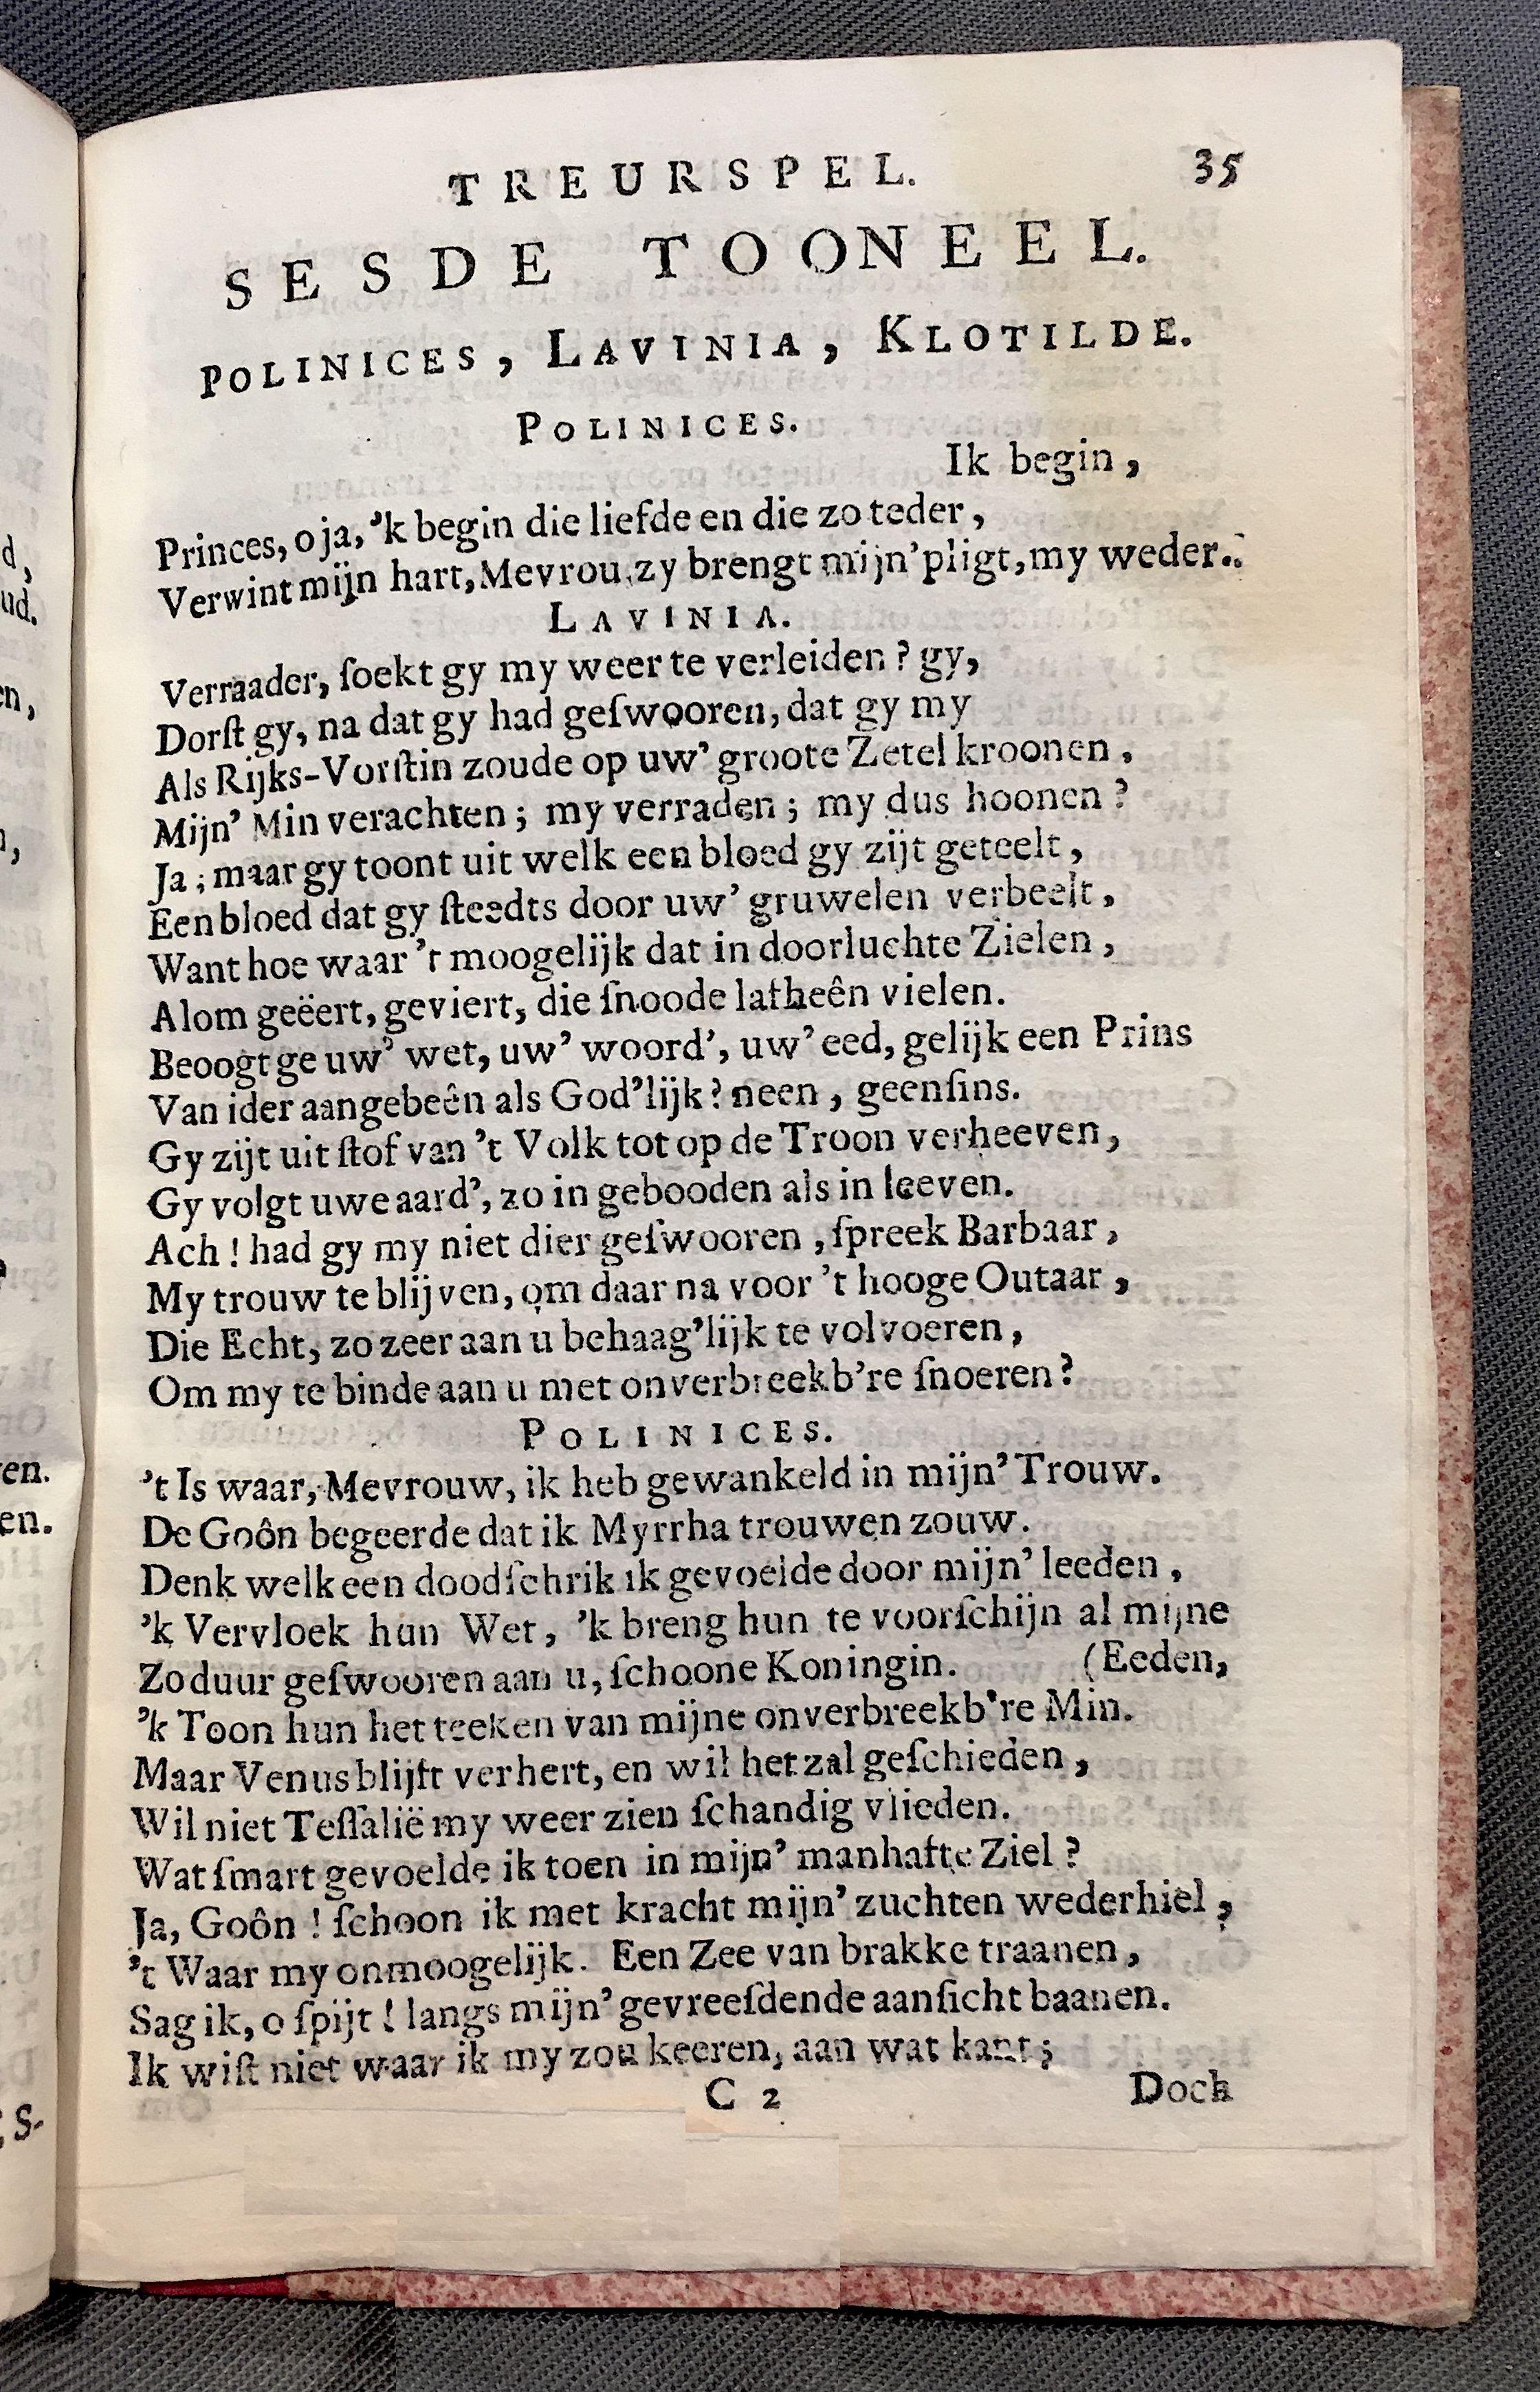 TREURSPEL. 35
SESDE TOONEEL.
POLINICES, LAVINIA, KLOTILDE.
POLINICES.
Ik begin,
Princes, o ja, 'k begin die liefde en die zo teder,
Verwint mijn hart, Mevrou, zy brengt mijn' pligt, my weder..
LAVINIA.
Verraader, ſoekt gy my weer te verleiden? gy,
Dorſt gy, na dat gy had geſwooren, dat gy my
Als Rijks-Vorſtin zoude op uw' groote Zetel kroonen,
Mijn' Min verachten; my verraden; my dus hoonen?
Ja; maar gy toont uit welk een bloed gy zijt geteelt,
Een bloed dat gy steedts door uw' gruwelen verbeelt,
Want hoe waar 't moogelijk dat in doorluchte Zielen,
Alom geëert, geviert, die ſnoode lafheên vielen.
Beoogt ge uw' wet, uw' woord', uw' eed, gelijk een Prins
Van ider aangebeên als God'lijk? neen, geenſins.
Gy zijt uit ſtof van 't Volk tot op de Troon verheeven,
Gy volgt uwe aard', zo in gebooden als in leeven.
Ach! had gy my niet dier geſwooren, ſpreek Barbaar,
My trouw te blijven, om daar na voor 't hooge Outaar,
Die Echt, zo zeer aan u behaag'lijk te volvoeren,
Om my te binde aan u met onverbreekb're ſnoeren?
POLINICES.
't Is waar, Mevrouw, ik heb gewankeld in mijn' Trouw.
De Goôn begeerde dat ik Myrrha trouwen zouw.
Denk welk een doodſchrik ik gevoelde door mijn' leeden,
'k Vervloek hun Wet, 'k breng hun te voorſchijn al mijne
Zo duur geſwooren aan u, ſchoone Koningin. (Eeden,
'k Toon hun het teeken van mijne onverbreekb're Min.
Maar Venus blijft verhert, en wil het zal geſchieden,
Wil niet Teſſalië my weer zien ſchandig vlieden.
Wat ſmart gevoelde ik toen in mijn' manhafte Ziel?
Ja, Goôn! ſchoon ik met kracht mijn' zuchten wederhiel,
't Waar my onmoogelijk. Een Zee van brakke traanen,
Sag ik, o ſpijt! langs mijn' gevreeſdende aanſicht baanen.
Ik wiſt niet waar ik my zou keeren, aan wat kant;
C 2 Doch